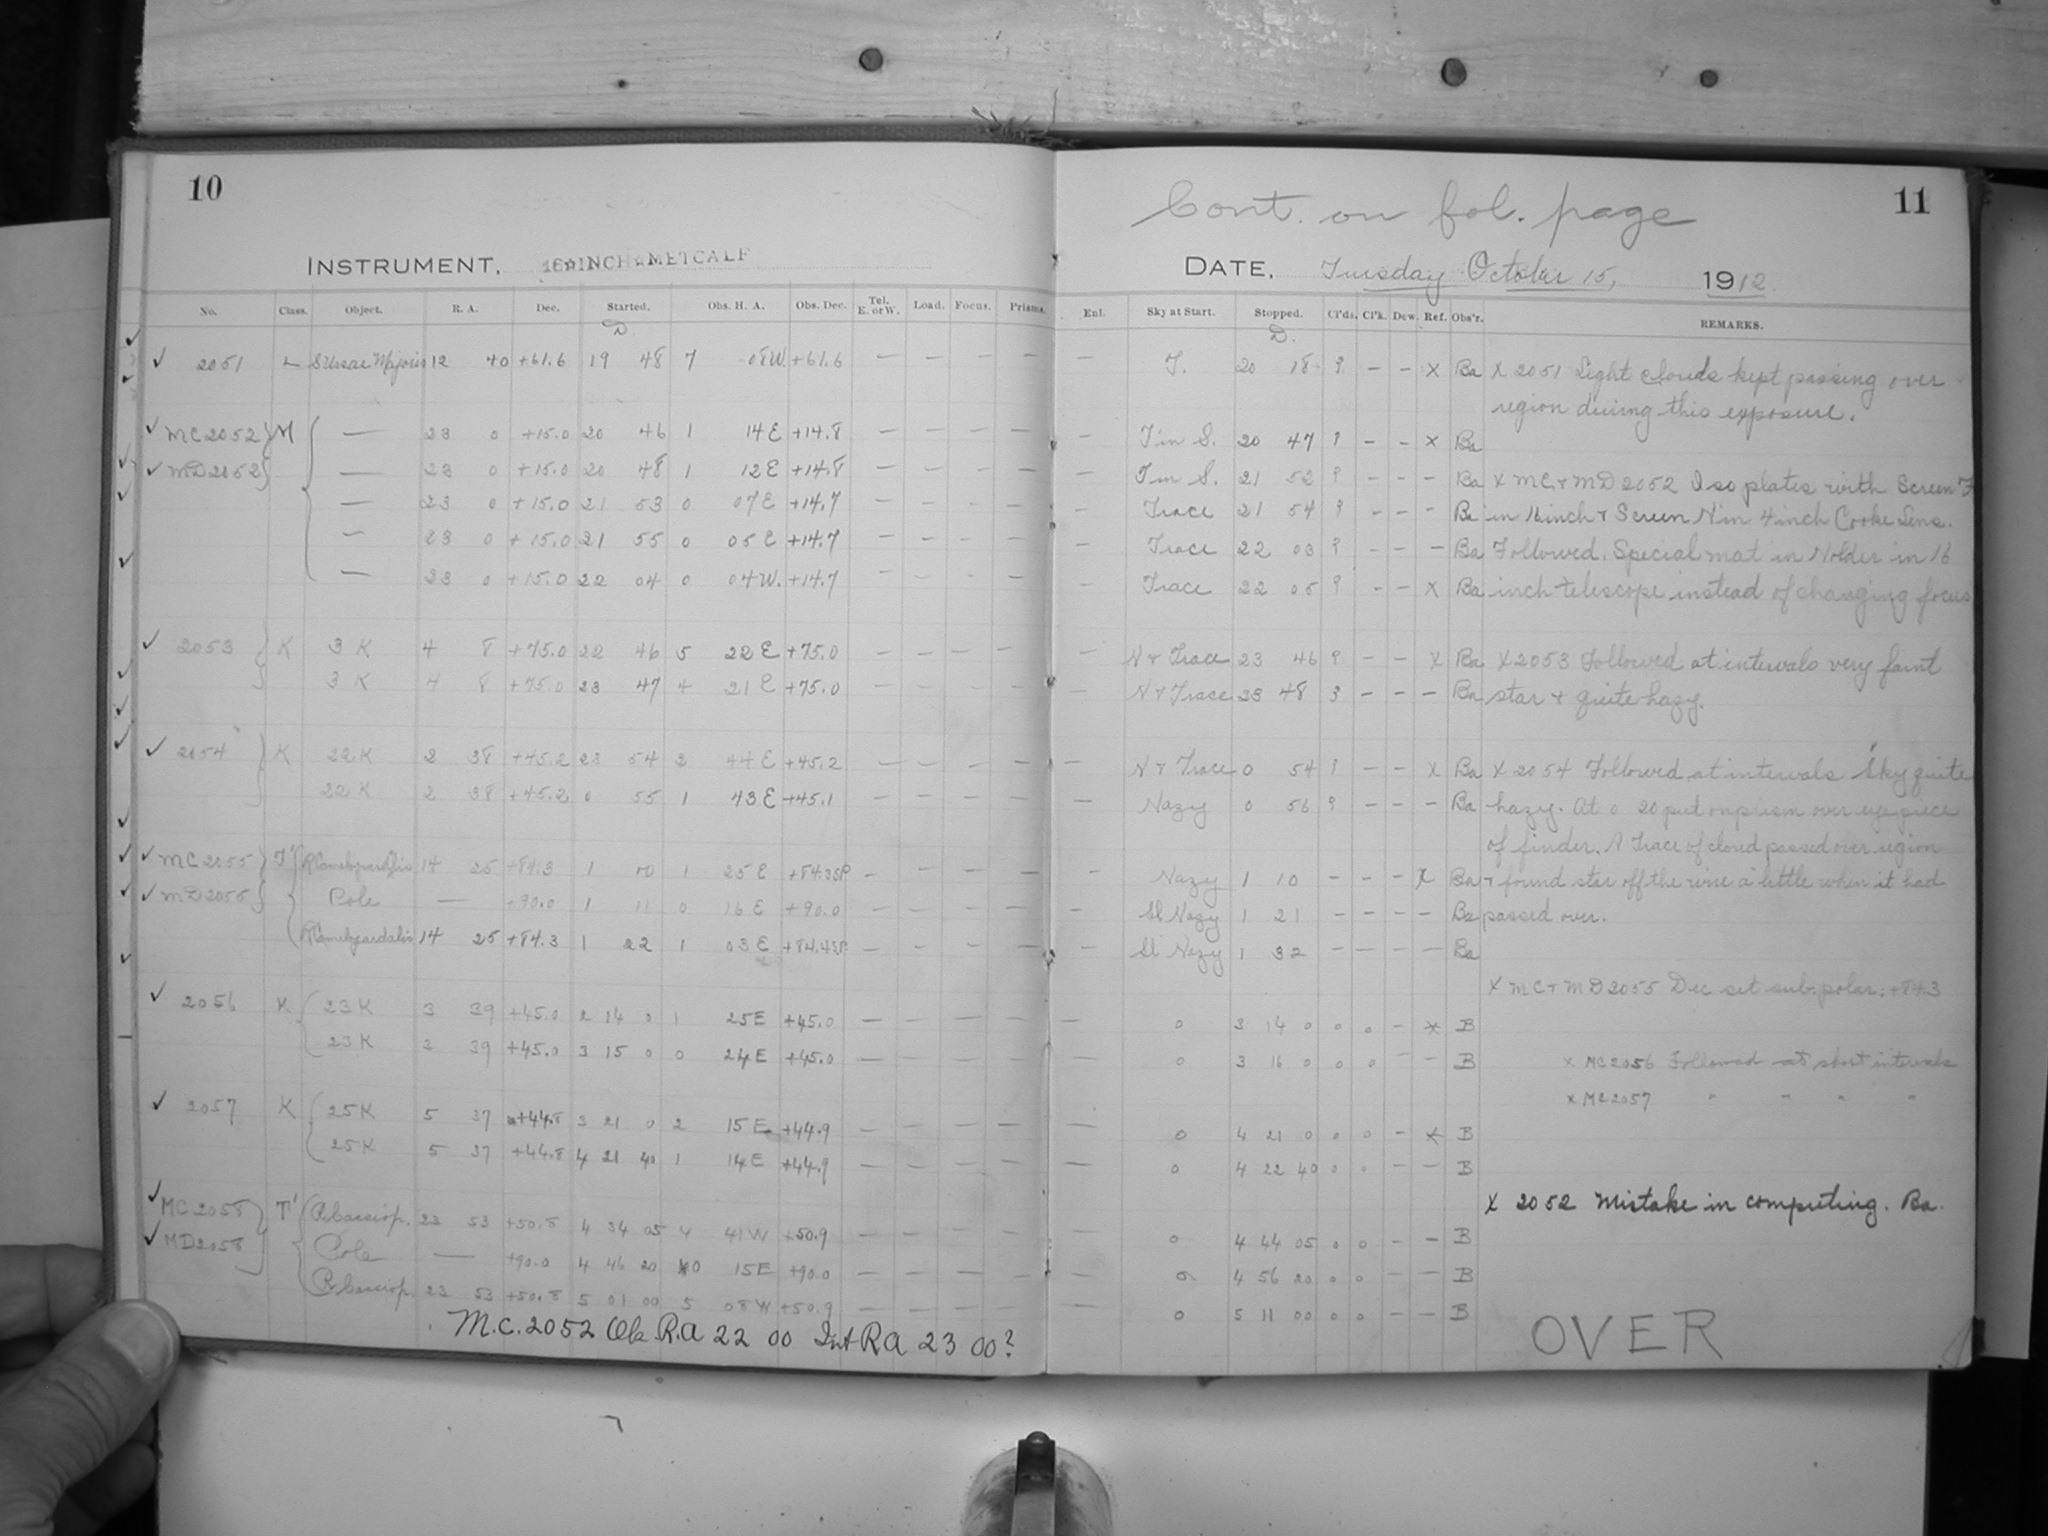 10
INSTRUMENT, 16 INCH METCALF
No. Class. Object. R. A. Dec. Started. Obs. H. A. Obs. Dec. Tel. E. or W. Load. Focus. Prisms.
D.
2051 L S Ursae Majoris 12 40 +61.6 19 48 7 08 W. +61.6 — — — —
MC 2052 M — 23 0 +15.0 20 46 1 14 E +14.8 — — — —
MD 2052 — 23 0 +15.0 20 48 1 12 E +14.8 — — — —
— 23 0 +15.0 21 53 0 07 E +14.7 — — — —
— 23 0 +15.0 21 55 0 05 E +14.7 — — — —
— 23 0 +15.0 22 04 0 04 W. +14.7 — — — —
2053 K 3 K 4 8 +75.0 22 46 5 22 E +75.0 — — — —
3 K 4 8 +75.0 23 47 4 21 E +75.0 — — — —
2054 K 22 K 2 38 +45.2 23 54 2 44 E +45.2 — — — —
22 K 2 38 +45.2 0 55 1 43 E +45.1 — — — —
MC 2055 T' R Camelopardalis 14 25 +84.3 1 00 1 25 E +84.3 SP — — — —
MD 2055 Pole — +90.0 1 11 0 16 E +90.0 — — — —
R Camelopardalis 14 25 +84.3 1 22 1 03 E +84.4 SP — — — —
2056 K 23 K 3 39 +45.0 2 14 0 1 25 E +45.0 — — — —
23 K 3 39 +45.0 3 15 0 0 24 E +45.0 — — — —
2057 K 25 K 5 37 +44.8 3 21 0 2 15 E +44.9 — — — —
25 K 5 37 +44.8 4 21 40 1 14 E +44.9 — — — —
MC 2058 T' R Cassiop. 23 53 +50.8 4 34 05 4 41 W +50.9 — — — —
MD 2058 Pole — +90.0 4 46 20 0 15 E +90.0 — — — —
R Cassiop. 23 53 +50.8 5 01 00 5 08 W +50.9 — — — —
M.C. 2052 Ob R.A 22 00 Int RA 23 00?
11
Cont. on fol. page
DATE, Tuesday October 15, 1912
Enl. Sky at Start. Stopped. Cl'ds. Cl'k. Dew. Ref. Obs'r. REMARKS.
D.
— T. 20 18 ? — — X Ba X 2051 Light clouds kept passing over
region during this exposure.
— T in S. 20 47 ? — — X Ba
— T in S. 21 52 ? — — — Ba X MC + MD 2052 Iso plates with Screen
— Trace 21 54 ? — — — Ba in 16 inch + Screen N in 4 inch Cooke Lens.
— Trace 22 03 ? — — — Ba Followed. Special mat in Holder in 16
— Trace 22 05 ? — — X Ba inch telescope instead of changing focus
— H + Trace 23 46 ? — — X Ba X 2053 Followed at intervals very faint
— H + Trace 23 48 ? — — — Ba star + quite hazy.
— H + Trace 0 54 ? — — X Ba X 2054 Followed at intervals Sky quite
— Hazy 0 56 ? — — — Ba hazy. At 0 20 put on prism over eye piece
of finder. A Trace of cloud passed over region
— Hazy 1 10 — — — X Ba + found star off the wire a little when it had
— Sl Hazy 1 21 — — — — Ba passed over.
— Sl Hazy 1 32 — — — — Ba
X MC + MD 2055 Dec set sub. polar. +84.3
— 0 3 14 0 0 0 — X B
— 0 3 16 0 0 0 — — B X MC 2056 Followed at short intervals
X MC 2057 " " " "
— 0 4 21 0 0 0 — X B
— 0 4 22 40 0 0 — — B
X 2052 Mistake in computing. Ba.
0 4 44 05 0 0 — — B
0 4 56 20 0 0 — — B
0 5 11 00 0 0 — — B
OVER